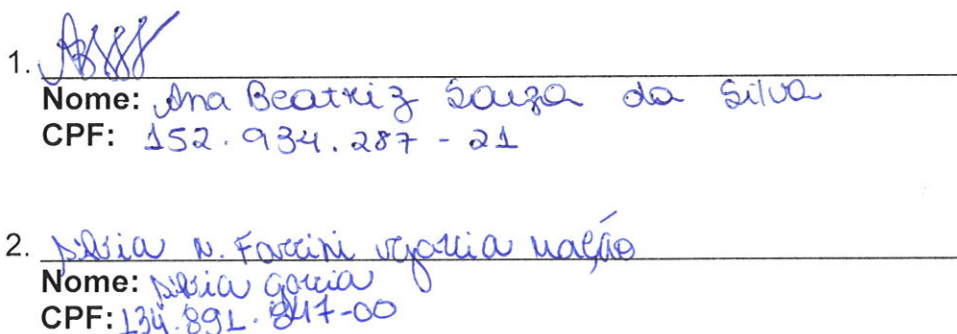 1.
Nome: Ana Beatriz Souza da Silva
CPF: 152.934.287-21
2. Silvia N. Farcini Garcia
Nome: Silvia Garcia
CPF: 134.891.847-00